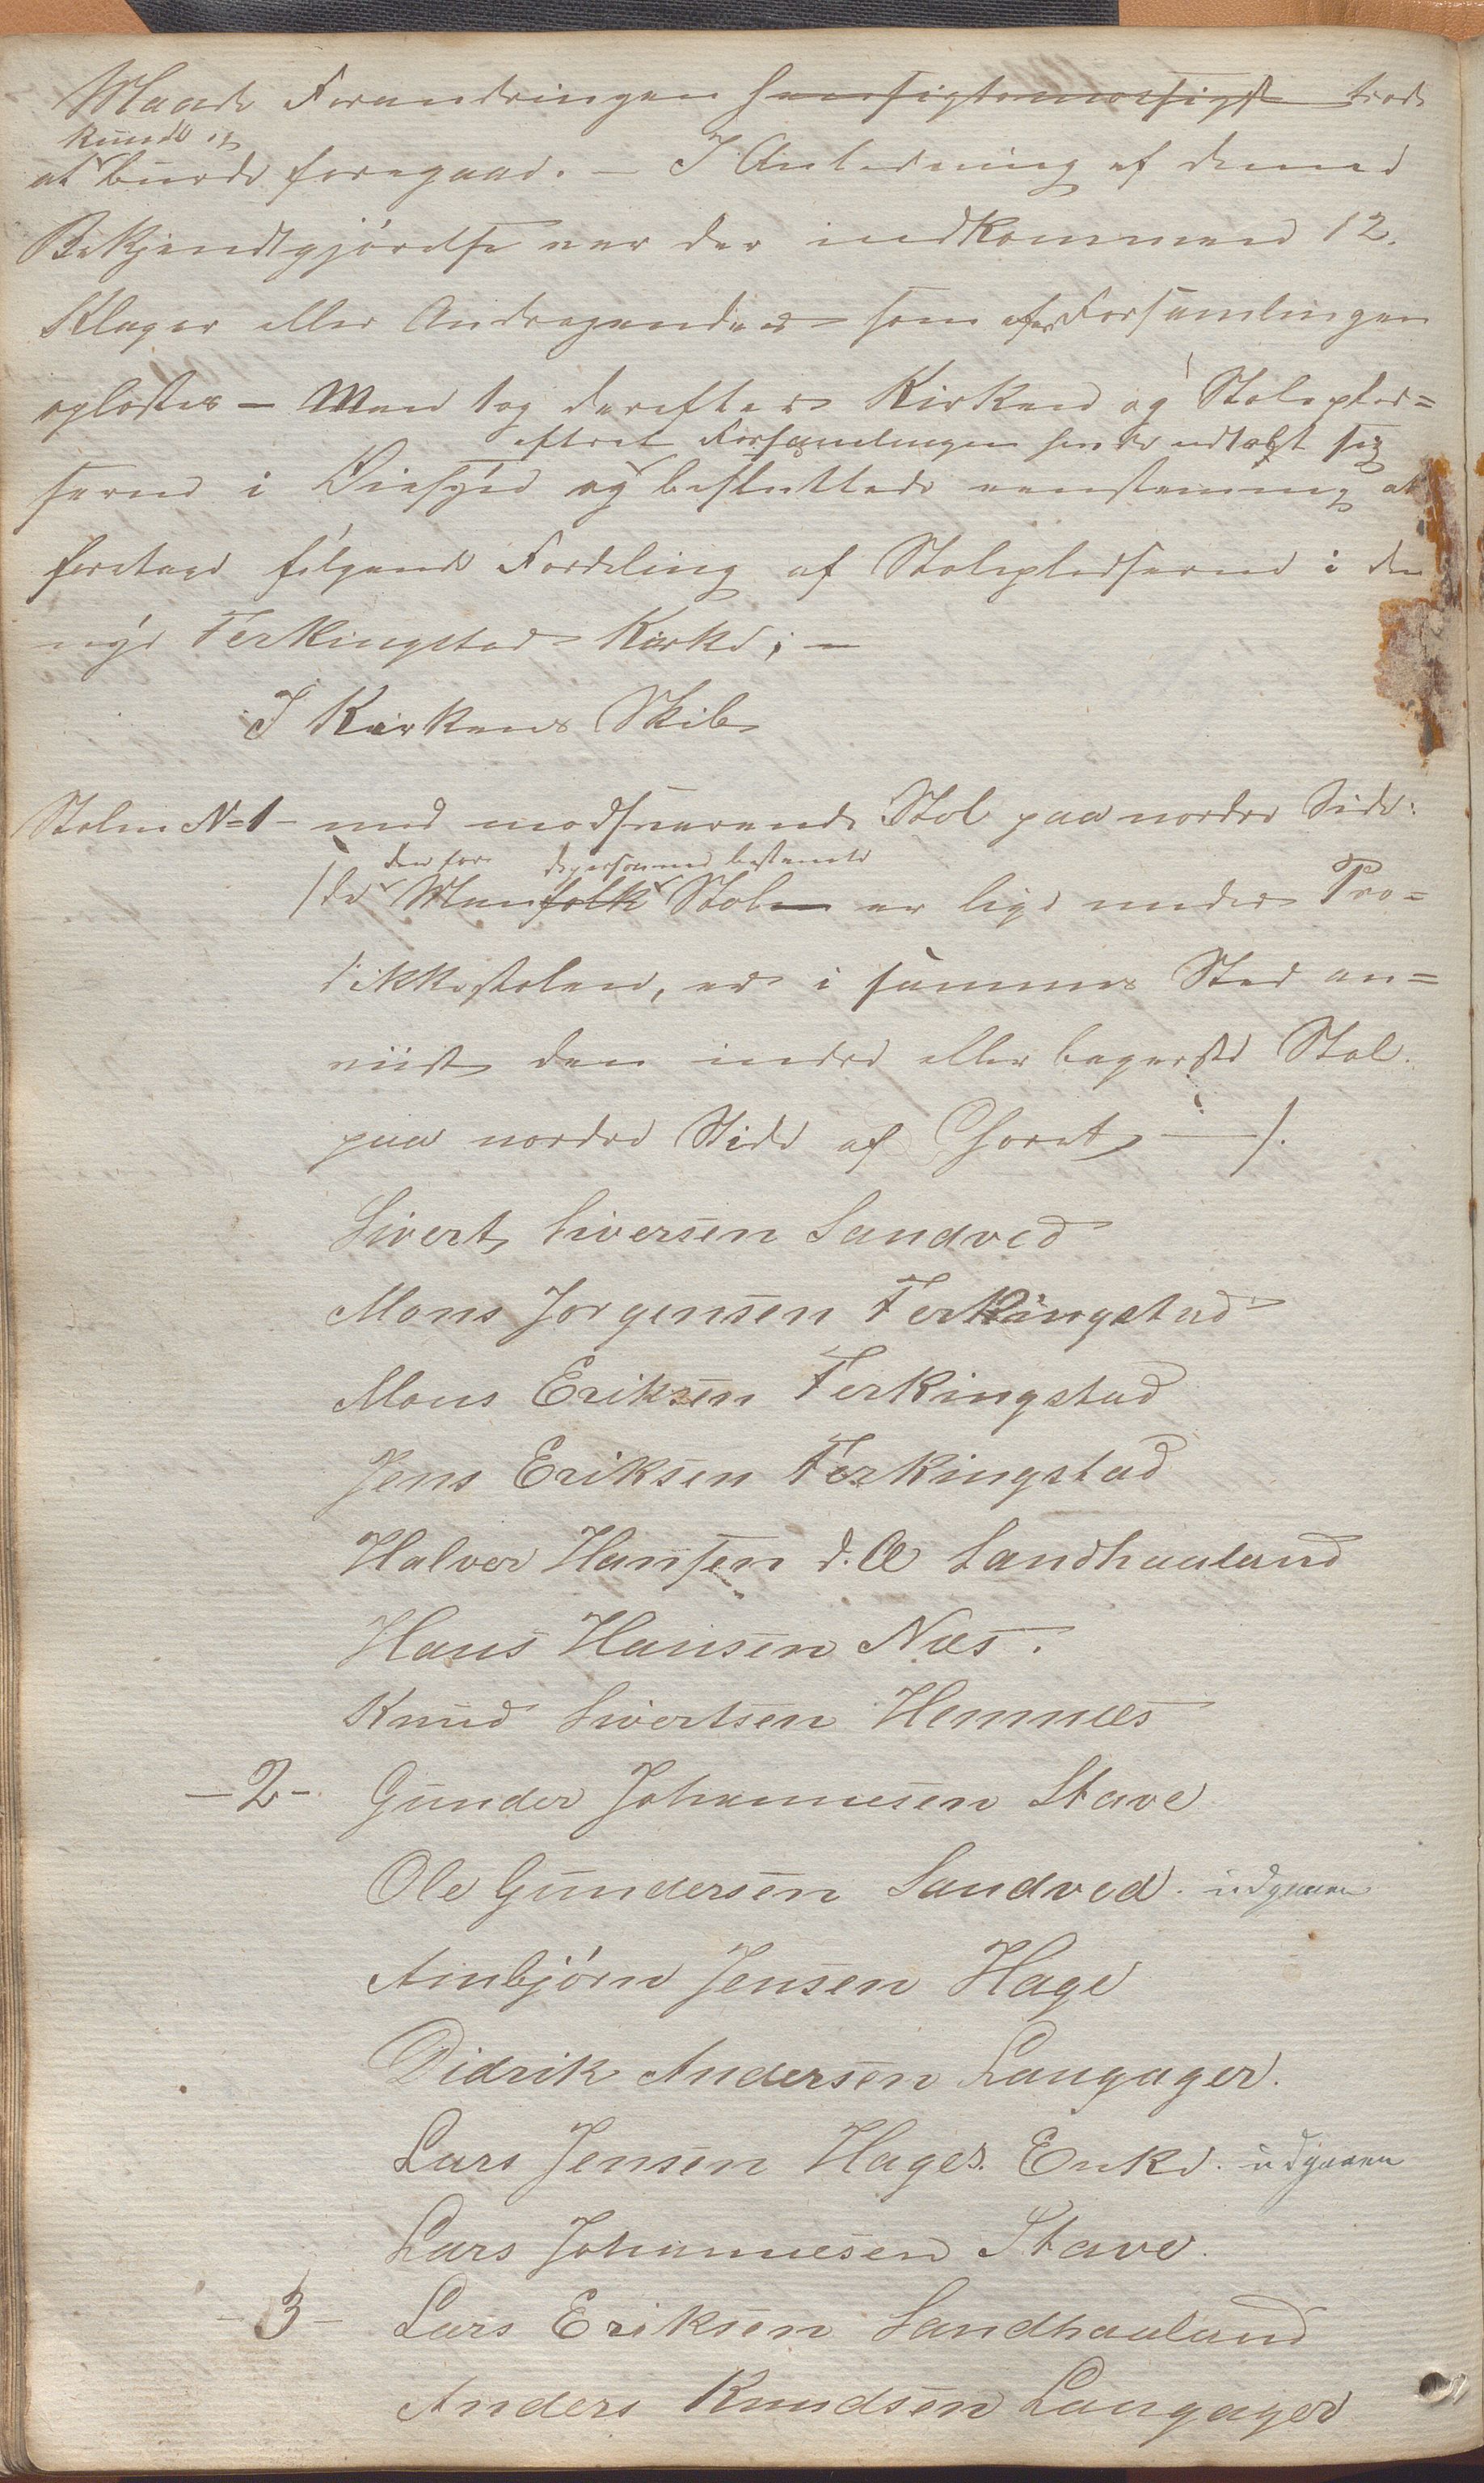 Maade Forandringen hensigtsmæssigst troede
kunde og
at burde foregaae. – I Anledning af denne
Bekjendtgjörelse var der indkommen 12.
Klager eller Andragender som for Forsamlingen
oplæstes – Man tog derefter Kirken og Stolepled=
efterat Forsamlingen havde udtalt sig
serne i Öiesyn og besluttede eenstemmig at
foretage fölgende Fordeling af Stolepladserne i den
nye Ferkingstad Kirke; –
I Kirkens Skib
Stolen No 1 – med modsvarende Stol paa nordre Side:
den for dspersoner bestemte
/da Manfolk Stolen er lige under Præ=
dikkestolen, er i sammes Sted an=
viist den indre eller bagerste Stol
paa nordre Side af Choret –/.
Sivert Siversen Sandved
Mons Jorgensen Ferkingstad
Mons Eriksen Ferkingstad
Jens Eriksen Ferkingstad
Halvor Hansen d. Æ Sandhaaland
Hans Hansen Næs.
Knud Sivertsen Hemnæs
– 2 – Gunder Johannesen Stave
Ole Gundersen Sandved. udgaaen
Ambjörn Jensen Hage
Didrik Andersen Langager.
Lars Jensen Hages. Enke. udgaaen
Lars Johannesen Stave.
– 3 – Lars Eriksen Sandhaaland
Anders Knudsen Langager